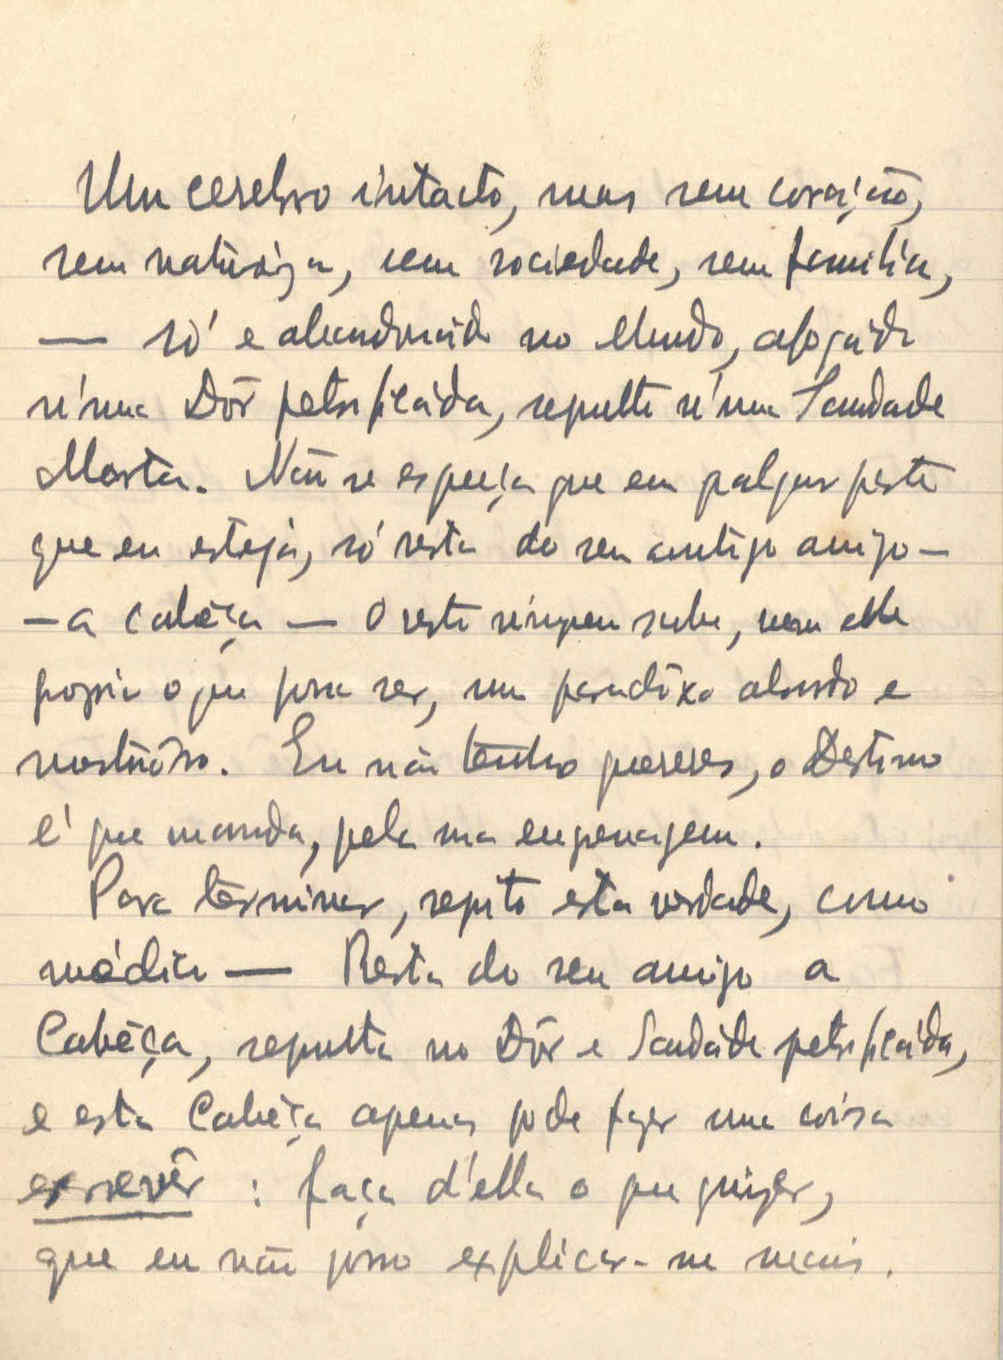 Um cerebro intacto, mas sem coração,
sem naturêza, sem sociedade, sem familia,
— só e abandonádo no Mundo, afogádo
n'uma Dôr petrificáda, sepulto n'uma Saudade
Morta. Não se esqueça que em qualquer parte
que eu esteja, só resta do seu antigo amigo —
— a cabêça — O resto ninguem sabe, nem elle
proprio o que possa ser, um paradôxo absurdo e
mostruôso. Eu não tenho quereres, o Destino
é que manda, pela sua engenagem.
Para terminar, repito esta verdade, como
médico — Resta do seu amigo a
Cabêça, sepulta na Dôr e Saudáde petrificáda,
e esta Cabêça apenas pode fazer uma coisa
escrevêr : faça d'ella o que quizer,
que eu não posso explicar-me mais.